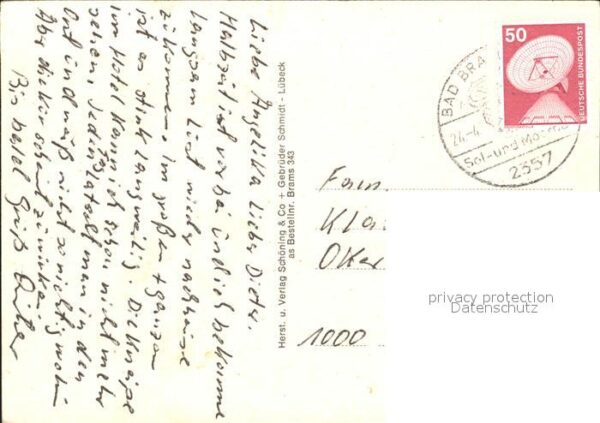 Liebe Angelika Lieber Dieter.
Halbzeit ist vorbei und ich bekomme
langsam Lust wieder nach Hause
zu kommen. Im großen + ganzen
ist es stink langweilig. Die Kneipe
im Hotel kann ich schon nicht mehr
sehen. Jeden Tag
man in den
Ort und
nicht so richtig wohin
Aber die Kur scheint zu wirken.
Bis bald Gruß
Herst. u. Verlag Schöning & Co + Gebrüder Schmidt - Lübeck
as Bestellnr. Brams 343
50
DEUTSCHE BUNDESPOST
BAD BRA
24.-4.
Sol- und Moor
2357
Fam.
Kla
Oker
1000
privacy protection
Datenschutz